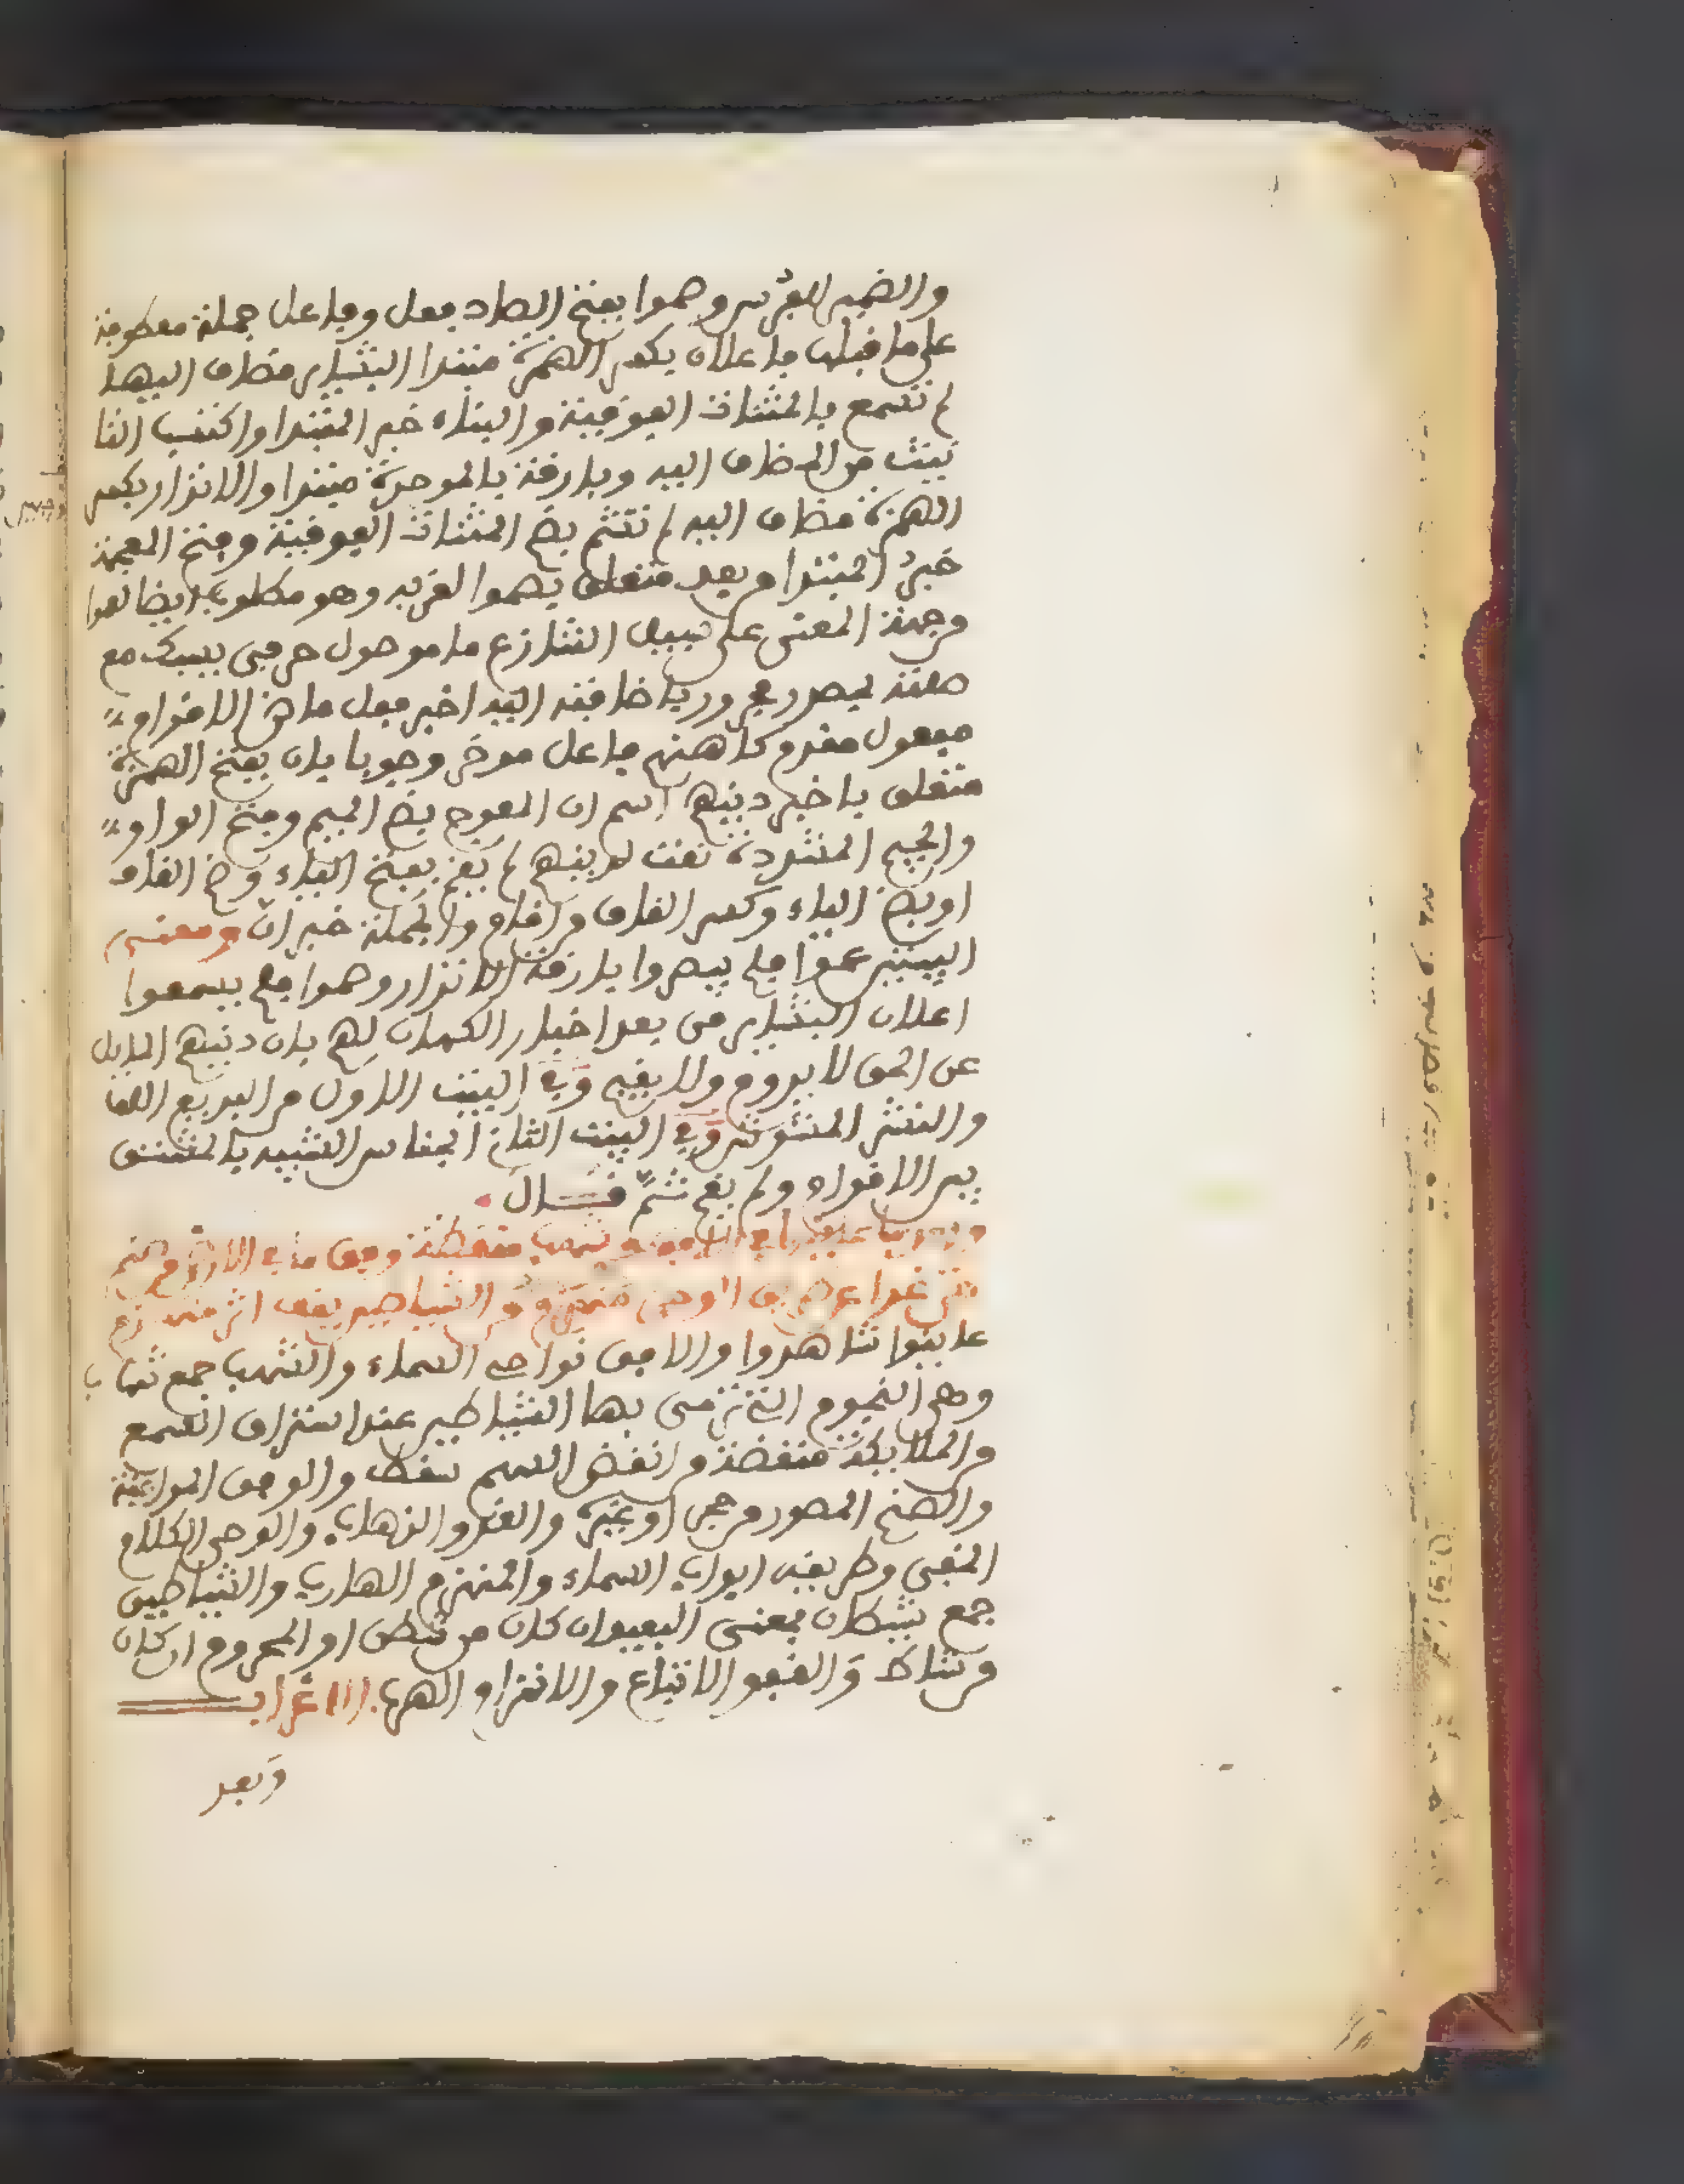 والضمير للفريسر وصموا بفتح الصاد فعل وفاعل جملة معطوفة
على ما قبلها فاعلان بكسر الهمزة مبتدا البشاير مضاف اليها
لم تسمع بالمثنات الفوقية والبناء خبر المبتدا واكتسب التا
نيث من المضاف اليه وبارقة بالموحدة مبتدا والانذار بكسر
الهمزة مضاف اليه لم تشم بضم المثنات الفوقية وفتح المعجمة
خبر المبتدا وبعد متعلق بصموا لقربه وهو مطلوب ايضا لعموا
وجهة المعنى على سبيل التنازع ما موصول حرفي يسبك مع
صلته بمصدر مجرور باضافته اليه اخبر فعل ماض الاقوام
مفعول مقدم كاهنهم فاعل موخر وجوبا بان بفتح الهمزة
متعلق باخبر دينهم اسم ان المعوج بضم الميم وفتح الواو
والجيم المشددة نعت لدينهم لم يقم بفتح الياء وضم القاف
او بضم الياء وكسر القاف من اقام والجملة خبر ان ومعنى
البيتين عموا فلم يبصروا بارقة الانذار وصموا فلم يسمعوا
اعلان البشاير من بعد اخبار الكهان لهم بان دينهم المايل
عن الحق لا يدوم ولا يقيم وفي البيت الاول من البديع اللف
والنشر المشوش وفي البيت الثاني الجناس الشبيه بالمشتق
بين الاقوام ولم يقم ثم قال
وبعد ما عاينوا في الافق من شهب منقضة وفق ما في الارض من صنم
حتى غدا عن طريق الوحي منهزم من الشياطين يقفوا اثر منهزم
عاينوا شاهدوا والافق نواحي السماء والشهب جمع شهاب
وهي النجوم التي ترمى بها الشياطين عند استراق السمع
والملايكة منقضة وانقض السهم سقط والوفق الموافقة
والصنم المصور من حجر او غيره والغدو الذهاب والوحي الكلام
الخفي وطريقه ابواب السماء والمنهزم الهارب والشياطين
جمع شيطان بمعنى البعيد ان كان من شطن او المحروم ان كان
من شاط والقفو الاتباع والانهزام الهرب الاعراب
وبعد